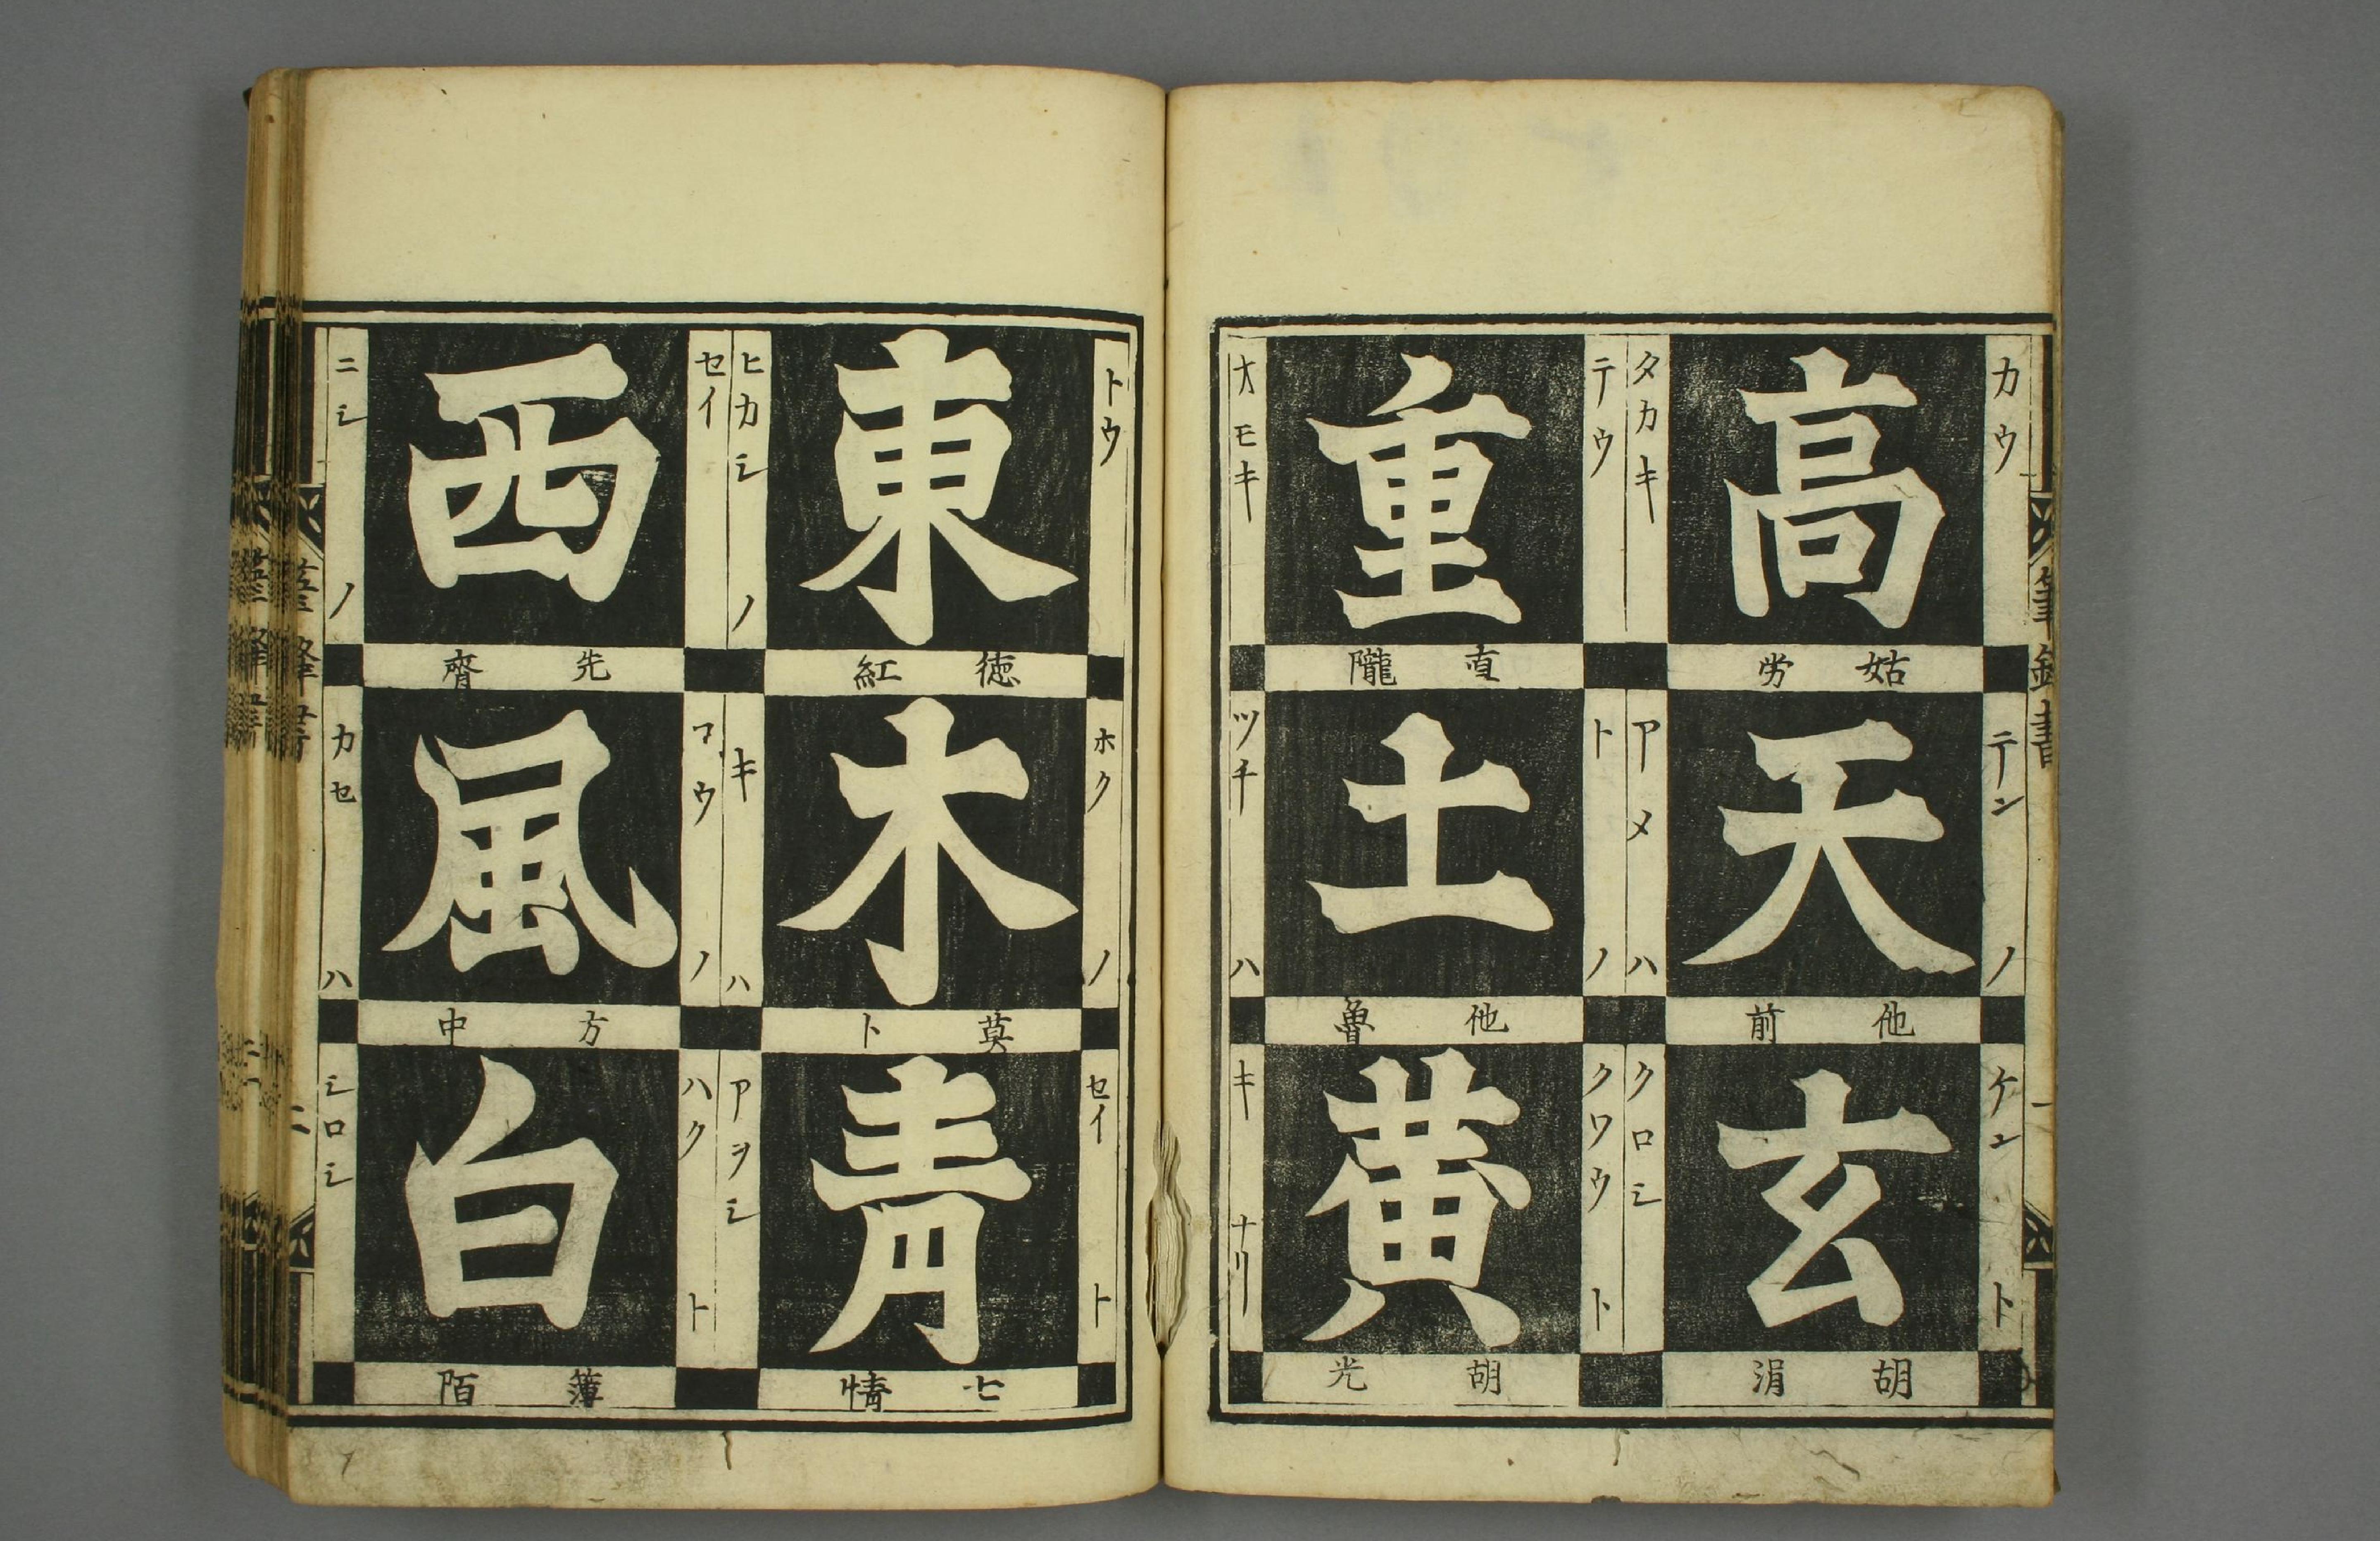 カウ
高
タカキ
姑労
テンノ
天
アメハ
他前
ケント
玄
クロシ
胡涓
テウ
重
オモキ
直隴
トノ
土
ツチハ
他魯
クワウト
黄
キナリ
胡光
トウ
東
ヒカシノ
徳紅
ホクノ
木
キハ
莫卜
セイト
青
アヲシ
七情
セイ
西
ニシノ
先齊
フウノ
風
カセハ
方中
ハクト
白
シロシ
簿陌
二